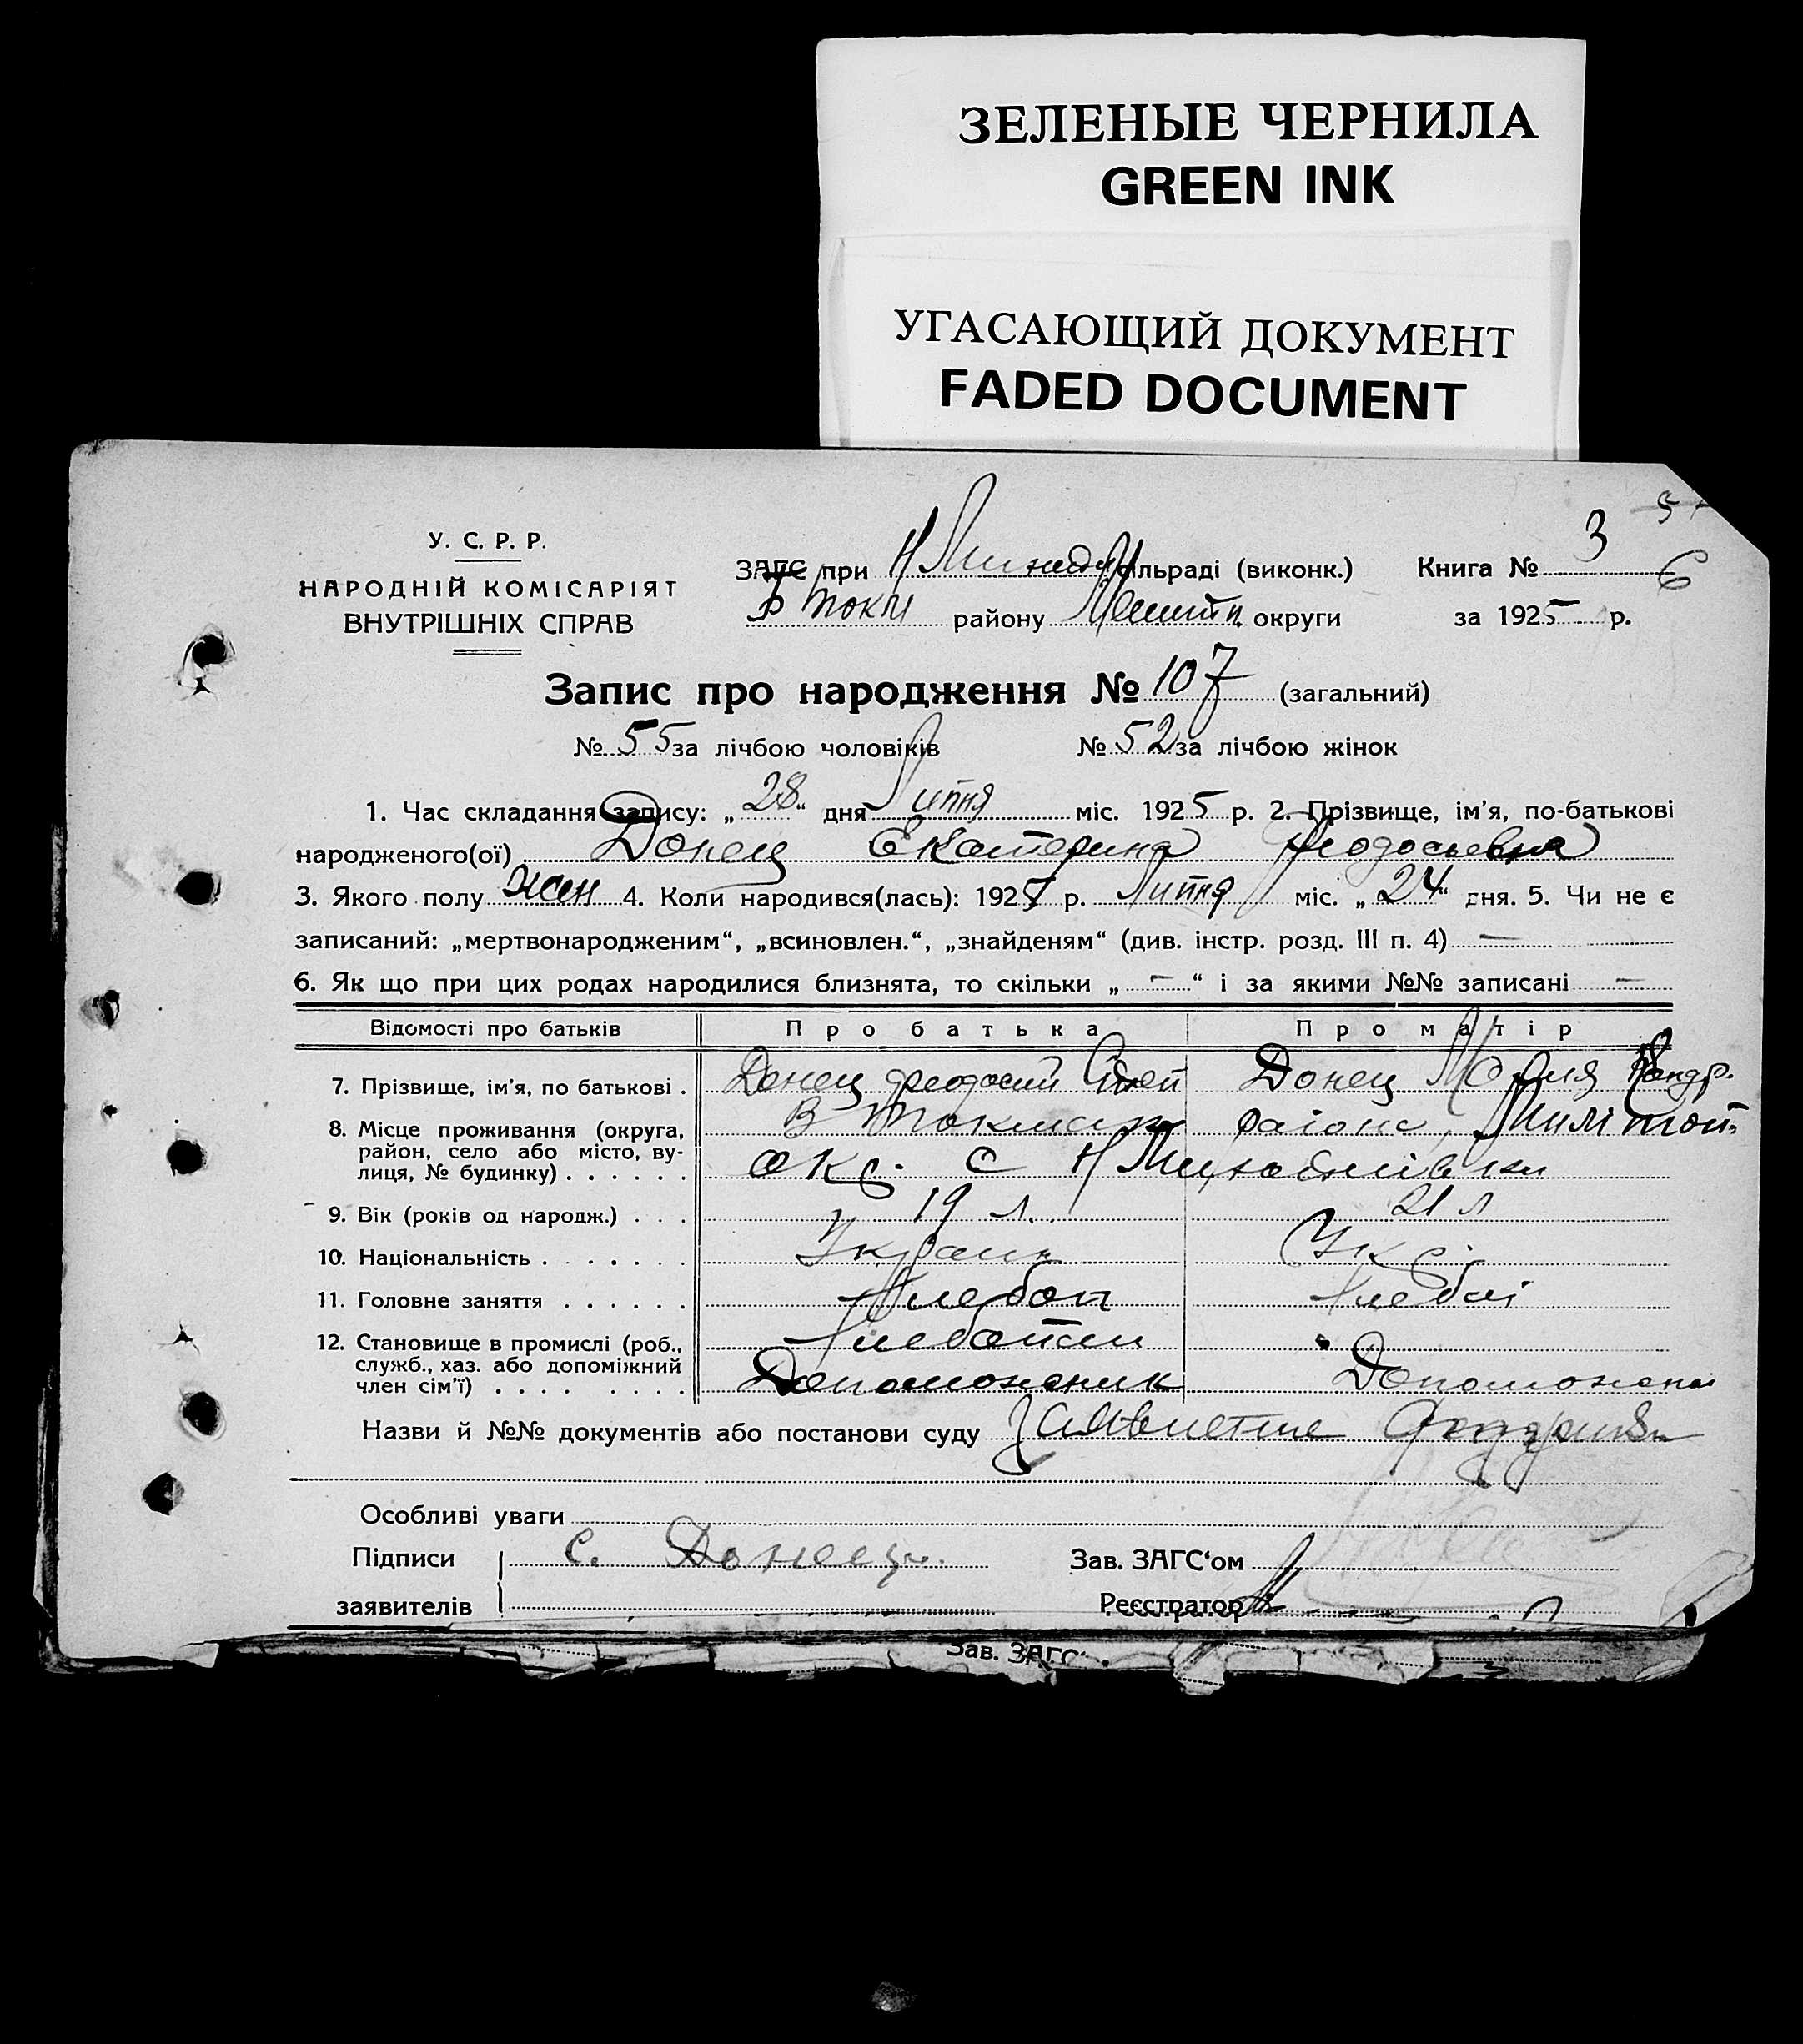 ЗЕЛЕНЫЕ ЧЕРНИЛА
GREEN INK
УГАСАЮЩИЙ ДОКУМЕНТ
FADED DOCUMENT
У. С. Р. Р.
НАРОДНІЙ КОМІСАРІЯТ
ВНУТРІШНІХ СПРАВ
ЗАГС при сільраді (виконк.) Книга № 3
5
6
району округи за 1925 р.
Запис про народження № 107 (загальний)
№ 55 за лічбою чоловіків № 52 за лічбою жінок
1. Час складання запису: „28“ дня Липня міс. 1925 р. 2. Прізвище, ім'я, по-батькові
народженого(ої) Донец Екатерина Феодосьевна
3. Якого полу жен 4. Коли народився(лась): 1925 р. Липня міс. „24“ дня. 5. Чи не є
записаний: „мертвонародженим“, „всиновлен.“, „знайденям“ (див. інстр. розд. III п. 4) —
6. Як що при цих родах народилися близнята, то скільки „—“ і за якими №№ записані —
Відомості про батьків Про батька Про матір
7. Прізвище, ім'я, по батькові . Донец Феодосий Степ Донец Мария Кондр.
8. Місце проживання (округа, В Токмак району,
район, село або місто, ву-
лиця, № будинку) . . . . . . окр. с Н
9. Вік (років од народж.) . . . 19 л. 21 л
10. Національність . . . . . . . Украин Укр.
11. Головне заняття . . . . . . Хлебоп
12. Становище в промислі (роб.,
служб., хаз. або допоміжний
член сім'ї) . . . . . . . . Допоможник
Назви й №№ документів або постанови суду
Особливі уваги
Підписи С. Донец Зав. ЗАГС‘ом
заявителів Реєстратор
Зав. ЗАГС